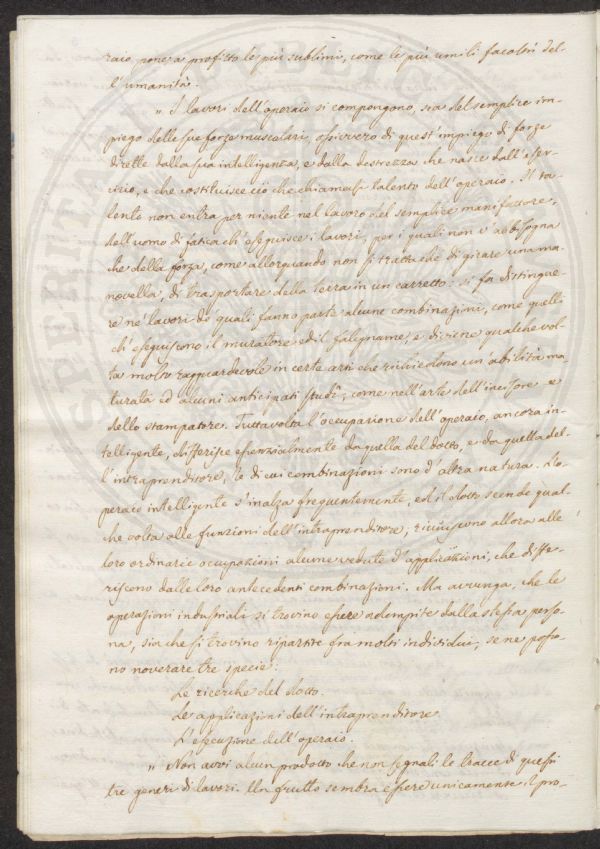 raio pone a profitto le più sublimi, come le più umili facoltà del-
l'umanità.
„ I lavori dell'operaio si compongono, sia del semplice im-
piego delle sue forze muscolari, ossivvero di quest'impiego di forze
dirette dalla sua intelligenza, e dalla destrezza che nasce dall'eser-
cizio, e che costituisce ciò che chiamasi talento dell'operaio. Il ta-
lento non entra per niente nel lavoro del semplice manifattore,
dell'uomo di fatica ch'eseguisce i lavori, per i quali non v'a bisogna
che della forza, come allorquando non si tratta che di girare una ma-
novella, di trasportare della terra in un carretto: si fa distingue-
re ne' lavori de' quali fanno parte alcune combinazioni, come quelli
ch'eseguiscono il muratore ed il falegname, e diviene qualche vol-
ta molto ragguardevole in certe arti che richiedono un'abilità ma-
turata ed alcuni anticipati studî, come nell'arte dell'incisore e
dello stampatore. Tuttavolta l'occupazione dell'operaio, ancora in-
telligente, differisce essenzialmente da quella del dotto, e da quella del-
l'intraprenditore, le di cui combinazioni sono d'altra natura. L'o-
peraio intelligente s'inalza frequentemente, ed il dotto scende qual-
che volta alle funzioni dell'intraprenditore; riuniscono allora alle
loro ordinarie occupazioni alcune vedute d'applicazioni, che diffe-
riscono dalle loro antecedenti combinazioni. Ma avvenga, che le
operazioni industriali si trovino essere adempite dalla stessa perso-
na, sia che si trovino ripartite fra molti individui, se ne posso-
no noverare tre specie:
Le ricerche del dotto.
Le applicazioni dell'intraprenditore
L'esecuzione dell'operaio.
„ Non avvi alcun prodotto che non segnali le tracce di questi
tre generi di lavori. Un frutto sembra essere unicamente il pro-